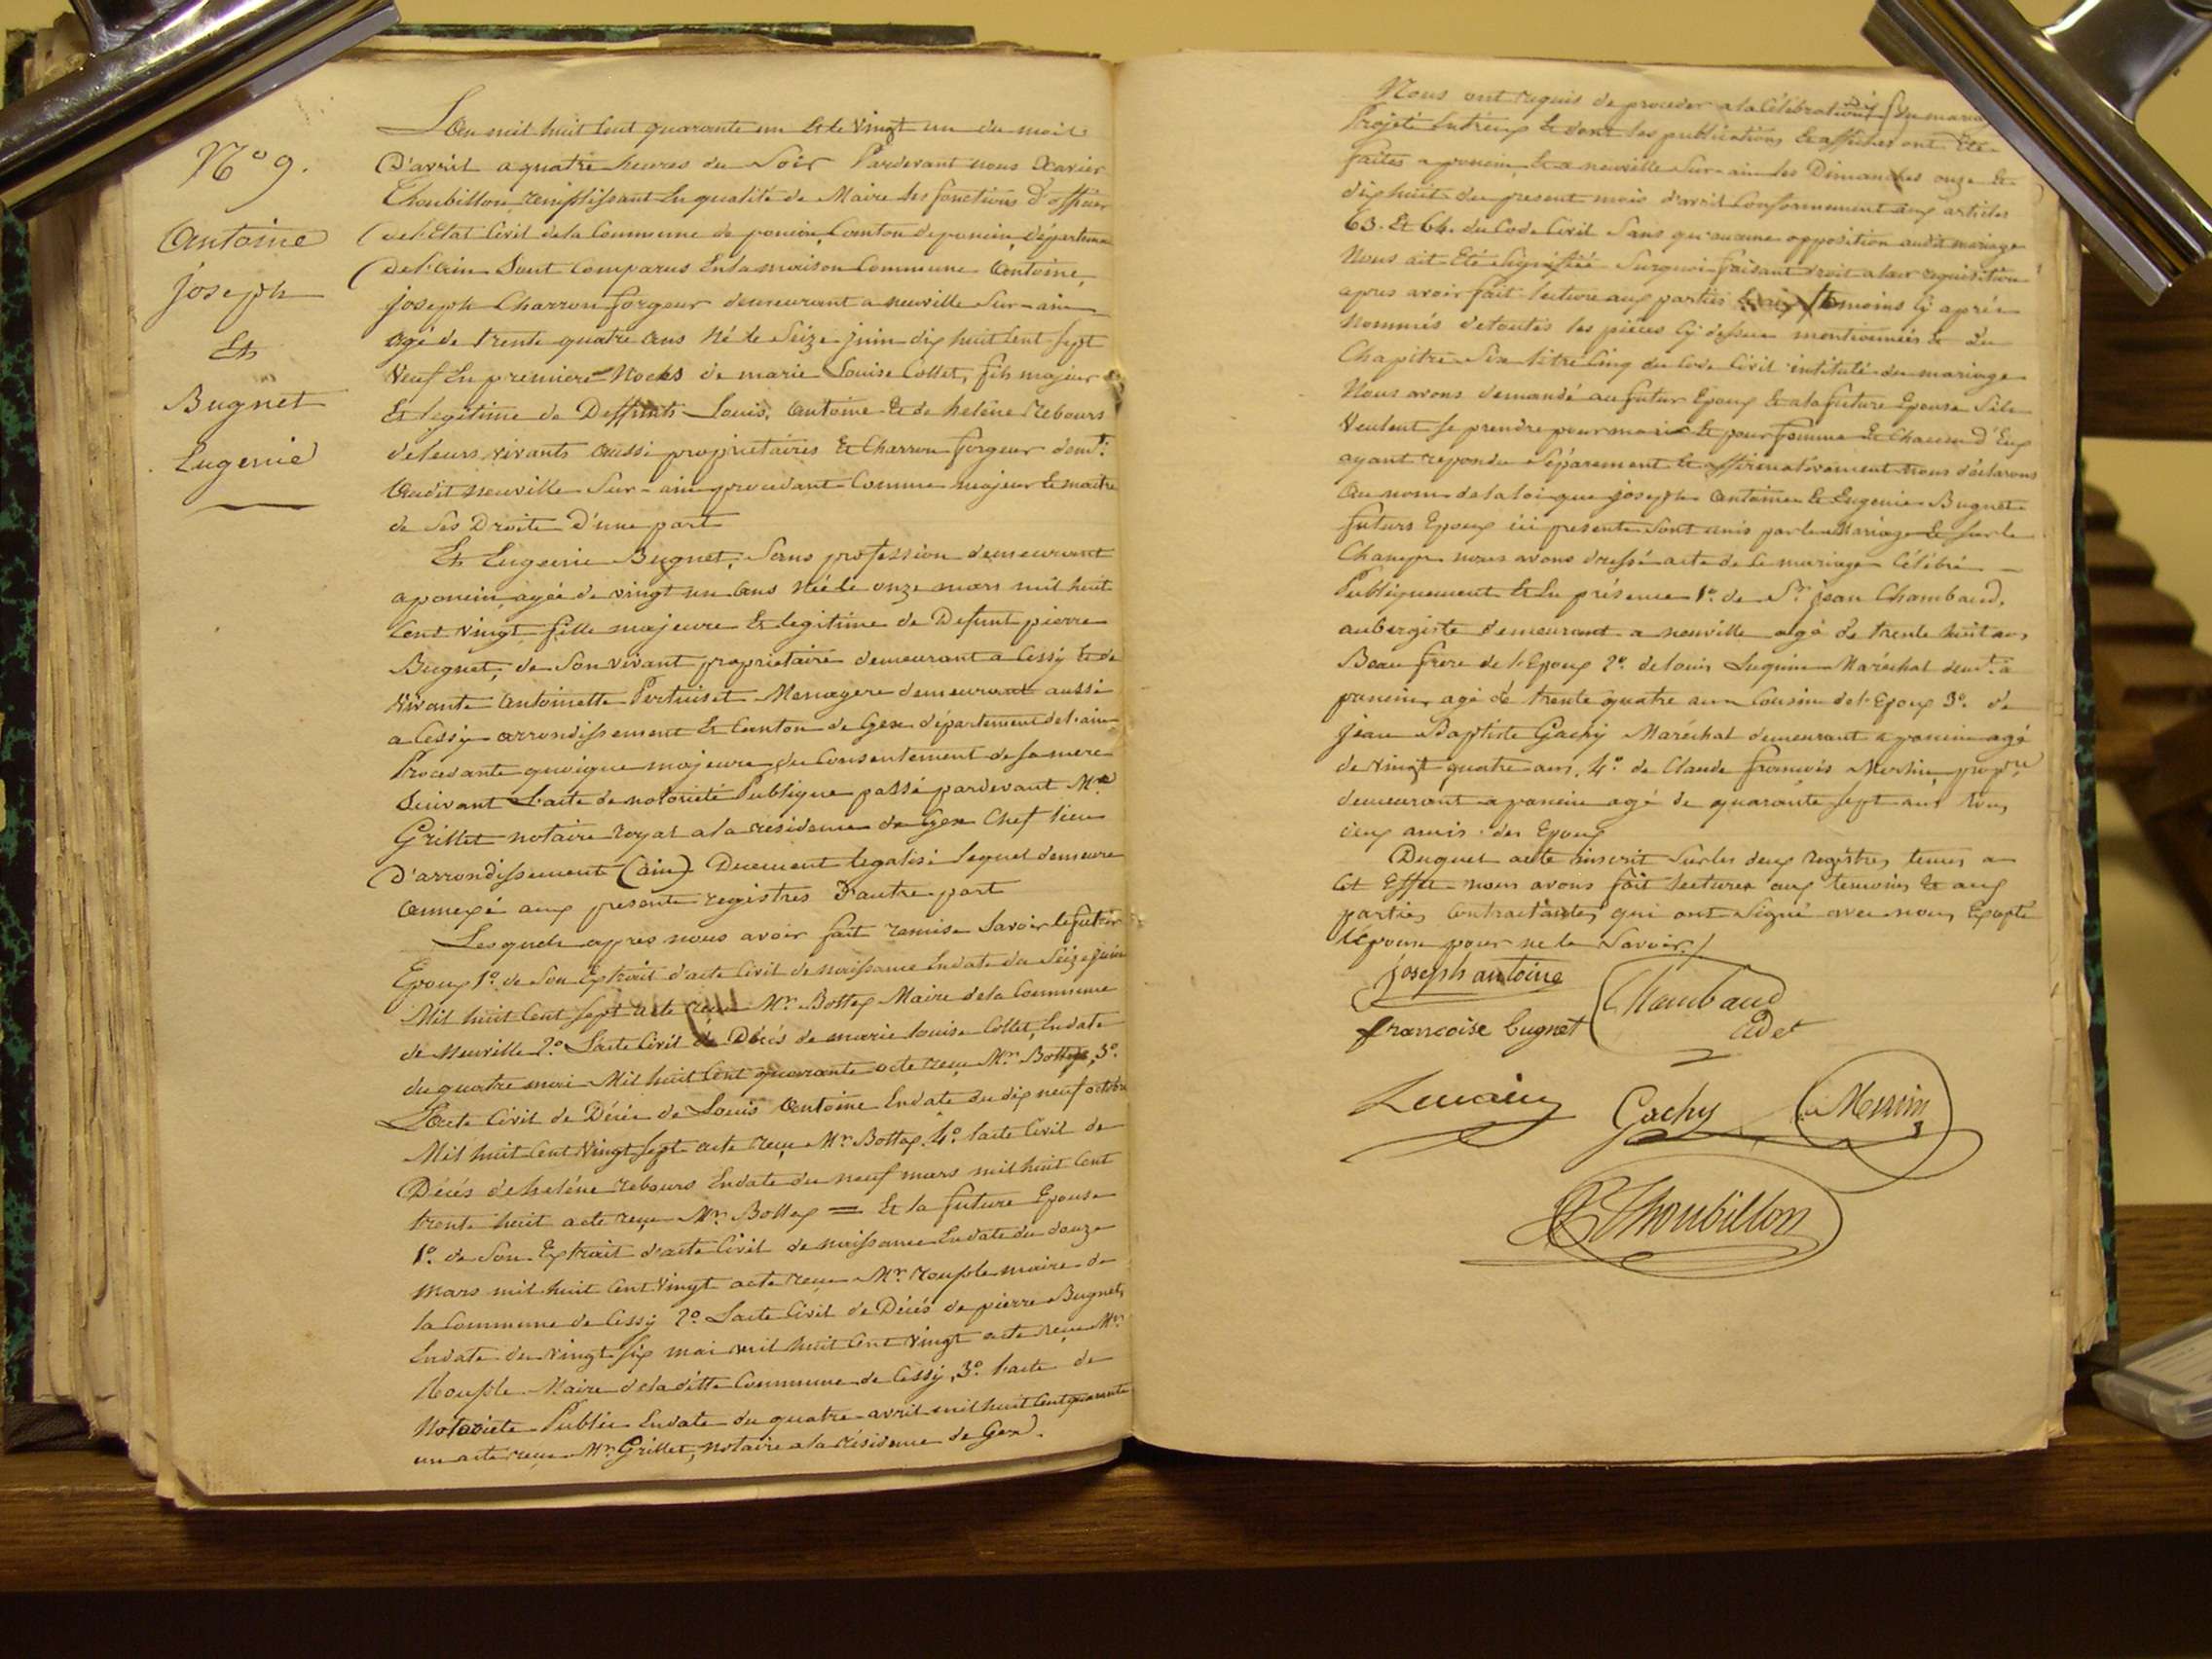 N° 9.
Antoine
joseph
Et
Bugnet
Eugenie
L'an mil huit Cent quarante un Et le Vingt un du mois
D'avril a quatre heures du Soir Pardevant nous Xavier
Thoubillon remplissant En qualité de Maire les fonctions D'officier
de l'Etat Civil de la Commune de poncin, Canton de poncin, départeme
De l'ain Sont Comparus En la maison Commune Antoine
joseph Charron forgeur demeurant a neuville Sur-ain
agé de trente quatre ans Né le Seize juin dix huit Cent Sept
Veuf En premiere Noces de marie Louise Collet, fils majeur
Et legitime de Deffunts Louis, Antoine Et de helène Rebours
de leurs vivants aussi proprietaires Et Charron forgeur demt.
Audit neuville Sur-ain procedant Comme majeur Et maitre
de Ses Droits D'une part
Et Eugenie Bugnet, Sans profession demeurant
a poncin, agée de vingt un ans Née le onze mars mil huit
Cent vingt fille majeure Et legitime de Defunt pierre
Bugnet, de Son vivant proprietaire demeurant a Cessy Et de
vivante Antoinette Pertuiset Menagere demeurant aussi
a Cessy arrondissement Et Canton de Gex département de l'ain
Procedante quoique majeure du Consentement de Sa mere
Suivant L'acte de notorieté Publique passé pardevant Me
Grillet notaire royal a la residence de Gex Chef lieu
D'arrondissement (ain) Duement legalisé lequel demeure
Annexé aux presents registres D'autre part
Lesquels apres nous avoir fait remise Savoir le futur
Epoux 1°. de Son Extrait d'acte Civil de naissance En date du Seize juin
Mil huit Cent Sept acte reçu Mr. Bottex Maire de la Commune
de Neuville 2°. L'acte Civil de Décès de marie louise Collet, En date
du quatre mai Mil huit Cent quarante acte reçu Mr. Bottex, 3°.
L'acte Civil de Décès de Louis Antoine En date du dix neuf octobre
Mil huit Cent Vingt Sept acte reçu Mr. Bottex. 4°. l'acte Civil de
Décès de helène rebours En date du neuf mars mil huit Cent
trente huit acte reçu Mr. Bottex = Et la future Epouse
1°. de Son Extrait d'acte Civil de naissance En date du douze
mars mil huit Cent Vingt acte reçu Mr. rouple maire de
la Commune de Cessy 2°. L'acte Civil de Décès de pierre Bugnet,
En date du vingt Six mai mil huit Cent Vingt acte reçu Mr.
Rouple Maire de la ditte Commune de Cessy, 3°. l'acte de
Notorieté Public En date du quatre avril mil huit Cent quarante
un acte reçu Mr. Grillet, notaire a la résidence de Gex.
Nous ont requis de proceder a la Célébration du mariage
Projeté Entr'eux Et dont les publications Et affiches ont Eté
faites a poncin, Et a neuville Sur-ain les Dimanches onze Et
dix huit du present mois d'avril Conformement aux articles
63. Et 64. du Code Civil Sans qu'aucune opposition audit mariage
Nous ait Eté Signifiée Surquoi faisant droit a leur requisition
apres avoir fait lecture aux parties temoins Cy après
Nommés de toutes les pièces Cy dessus mentionnées Et du
Chapitre Six titre Cinq du Code Civil intitulé du mariage
Nous avons demandé au futur Epoux Et a la future Epouse S'ils
Veulent Se prendre pour mari Et pour femme Et Chacun d'Eux
ayant repondu Séparement Et affirmativement Nous déclarons
Au nom de la loi que joseph Antoine Et Eugenie Bugnet
futurs Epoux ici presents Sont unis par le Mariage Et Sur le
Champ nous avons dressé acte de Ce mariage Célébré
Publiquement Et En présence 1°. de Sr. jean Chambaud,
aubergiste demeurant a neuville agé de trente huit ans,
Beau frere de l'Epoux 2°. de louis Maréchal demt. à
poncin, agé de trente quatre ans Cousin de l'Epoux 3°. de
jean Baptiste Gachy Maréchal demeurant a poncin agé
de vingt quatre ans, 4°. de Claude françois propre
demeurant a poncin agé de quarante Sept ans tous
deux amis des Epoux
Duquel acte inscrit Sur les deux registres tenus a
Cet Effet nous avons fait lecture aux temoins Et aux
parties Contractantes qui ont Signé avec nous Excepté
l'Epouse pour ne le Savoir./
joseph antoine
Chambaud
Cadet
francoise bugnet
Gachy
Thoubillon